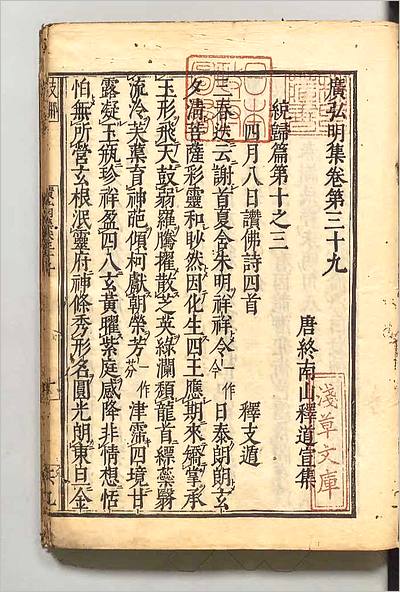 廣弘明集卷第三十九
唐終南山釋道宣集
統歸篇第十之三
四月八日讚佛詩四首 釋支遁
三春迭云謝首夏含朱明祥祥令一作今日泰朗朗玄
夕清菩薩彩靈和眇然因化生四王應期來矯掌承
玉形飛天鼓弱羅騰擢散芝英綠瀾頹龍首縹蘂翳
流泠芙蕖育神葩傾柯獻朝榮芳一作芬津霈四境甘
露凝玉瓶珍祥盈四八玄黃曜紫庭感降非情想恬
怕無所營玄根泯靈府神條秀形名圓光朗東旦金
淺草文庫
日本政府圖書